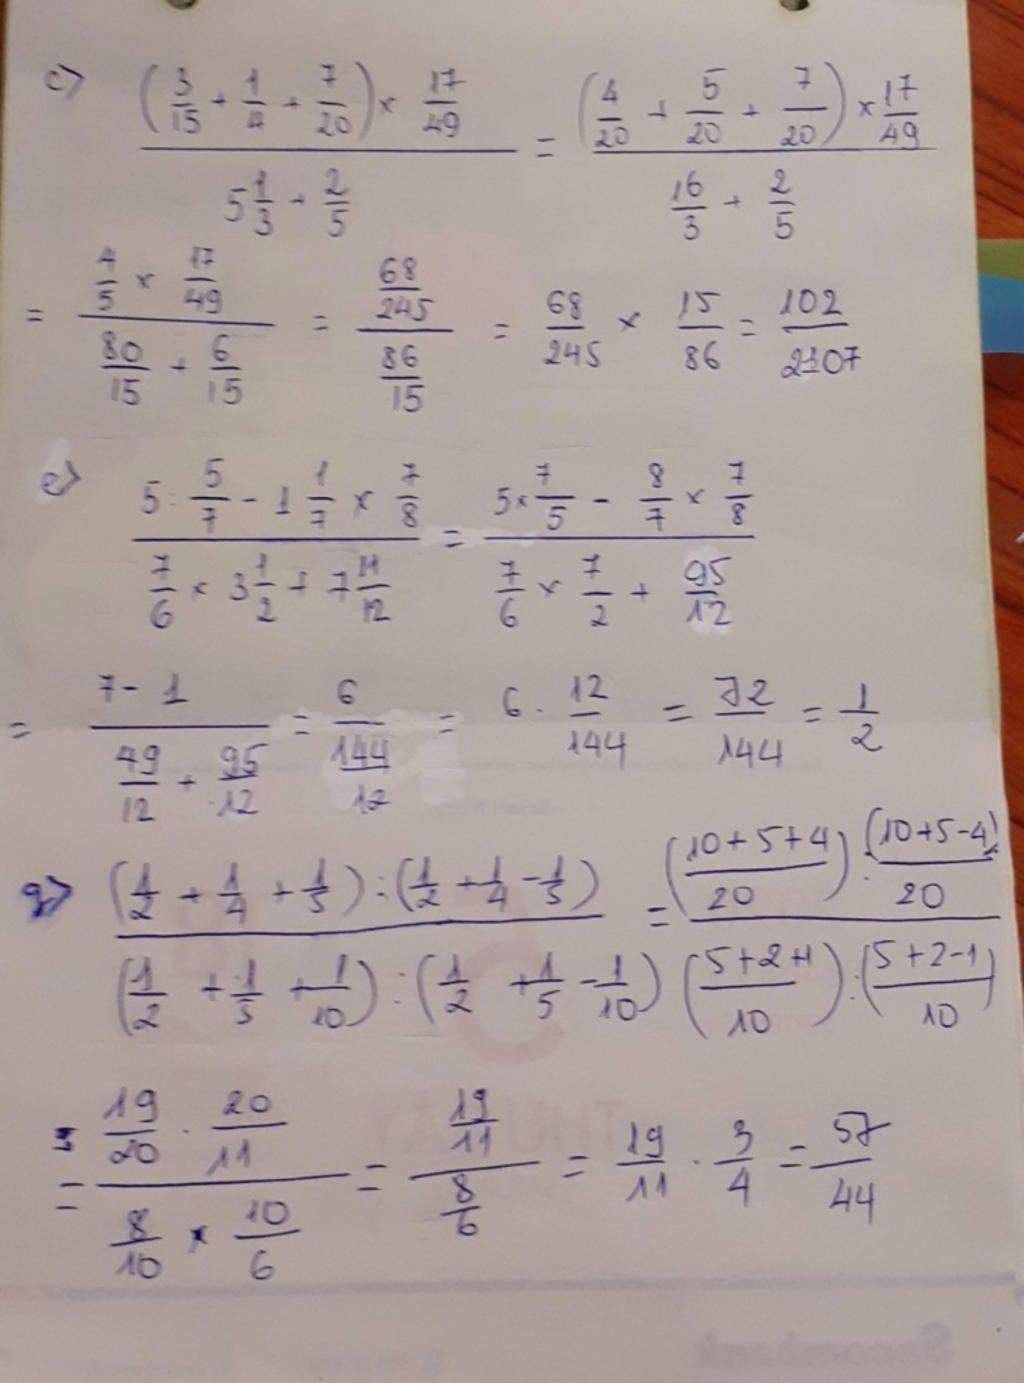 c) ((3/15 + 1/4 + 7/20) × 17/49) / (5 1/3 + 2/5) = ((4/20 + 5/20 + 7/20) × 17/49) / (16/3 + 2/5)
= (4/5 × 17/49) / (80/15 + 6/15) = (68/245) / (86/15) = 68/245 × 15/86 = 102/2107
e) (5 : 5/7 - 1 1/7 × 7/8) / (7/6 × 3 1/2 + 7 11/12) = (5 × 7/5 - 8/7 × 7/8) / (7/6 × 7/2 + 95/12)
= (7 - 1) / (49/12 + 95/12) = 6 / (144/12) = 6 . 12/144 = 72/144 = 1/2
g) ((1/2 + 1/4 + 1/5) : (1/2 + 1/4 - 1/5)) / ((1/2 + 1/5 + 1/10) : (1/2 + 1/5 - 1/10)) = (((10+5+4)/20) : ((10+5-4)/20)) / (((5+2+1)/10) : ((5+2-1)/10))
= (19/20 . 20/11) / (8/10 × 10/6) = (19/11) / (8/6) = 19/11 . 3/4 = 57/44